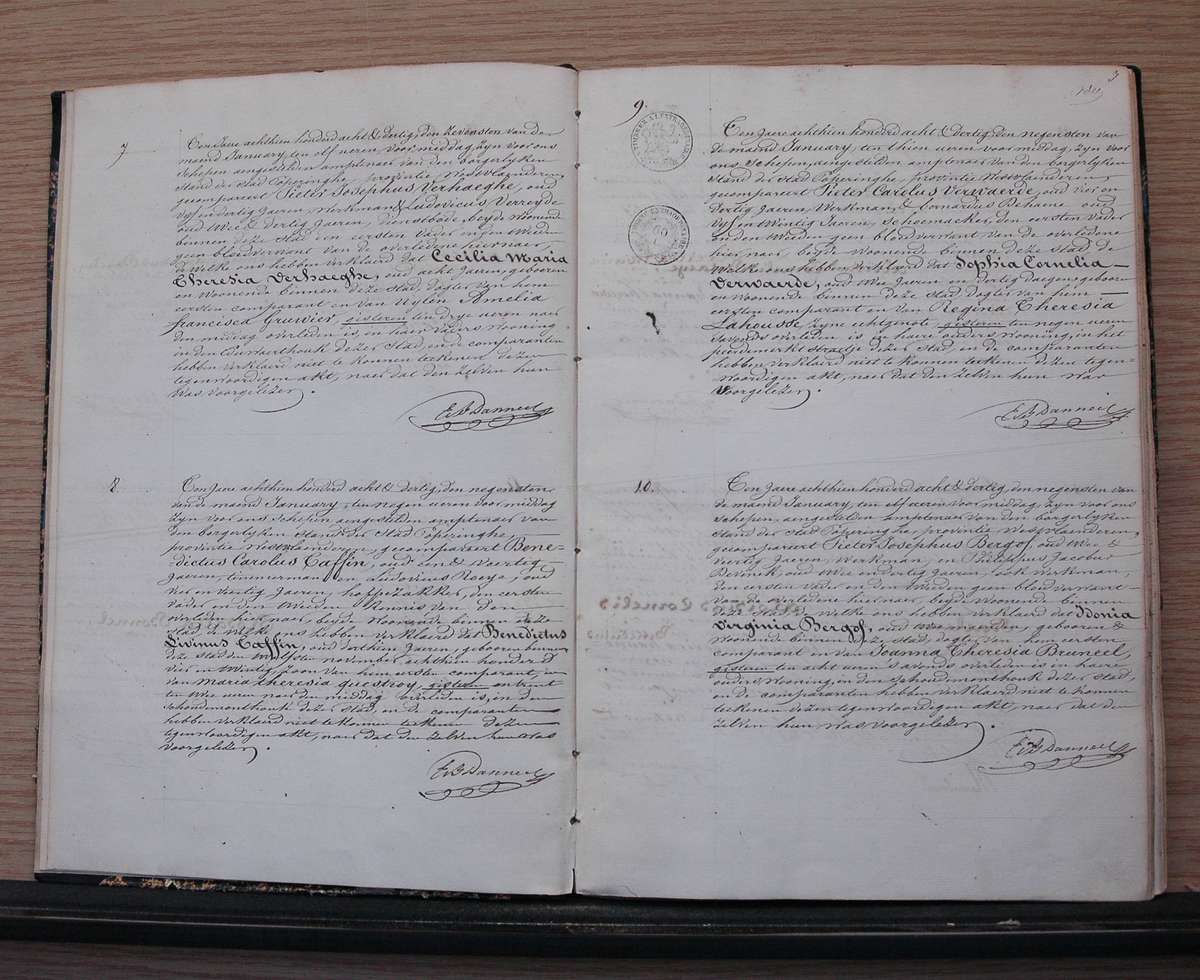 7
Ten Jaere achthien honderd acht & dertig, den zevensten van de
maend January, ten elf ueren voor middag, zyn voor ons
Schepen aengestelden amptenaer van den borgerlyken
Stand der Stad Poperinghe, provintie Westvlaenderen,
gecompareert Pieter Josephus Verhaeghe, oud
vyf en dertig Jaeren, Werkman & Ludovicus Verreyde
oud Wee & dertig Jaeren, dienstbode, beyde Wonende
binnen deze Stad den eersten vader en den Weeden
geen bloedverwant van de overledene hier naer,
de Welke ons hebben verklaerd dat Cecilia Maria
Theresia Verhaeghe, oud acht Jaeren, geboren
en Woonende binnen deze Stad dogter van hem
eersten comparant en van Amelia
francisca Gruwier, gisteren ten drye ueren naer
den middag overleden is in haer vaders Wooning
in den deze Stad, en de comparanten
hebben verklaerd niet te konnen teekenen dezen
tegenwoordigen akt, naer dat den zelven hun
Was voorgelezen.
E. B Danneel
8.
Ten Jaere achthien honderd acht & dertig, den negensten
van de maend January, ten negen ueren voor middag
Zyn voor ons Schepen aengestelden amptenaer van
den borgerlyken Stand der Stad Poperinghe,
provintie Westvlaenderen, gecompareert Bene-
dictus Carolus Caffin, oud een & Veertig
Jaeren, timmerman en Ludovicus oud
vier en Veertig Jaeren, hoppezakker, den eersten
vader en den Weeden kennis van den
overleden hier naer beyde Woonende binnen deze
Stad de Welke ons hebben verklaerd dat Benedictus
Livinus Caffin, oud dorthien Jaeren, geboren binnen
deze Stad den november achthien honderd
vier en Wintig Zoon van hem eersten comparant, en
van Maria theresia gisteren
ten Wee ueren naer den middag overleden is, in de
Schoudemonthouk deze Stad, en de comparanten
hebben verklaerd niet te konnen teekenen dezen
tegenwoordigen akt, naer dat den zelven hun Was
voorgelezen.
E. B Danneel
3
9.
Ten Jaere achthien honderd acht & dertig, den negensten van
de maend January, ten thien ueren voor middag, Zyn voor
ons Schepen, aengestelden amptenaer van den borgerlyken
Stand der Stad Poperinghe, provintie Westvlaenderen,
gecompareert Pieter Carolus Verwaerde, oud vier en
dertig Jaeren, Werkman & Cornardus Behaeme oud
vyf en Wintig Jaeren, Schoemaeker, den eersten vader
en den Weeden geen bloedverwant van de overledene
hier naer beyde Woonende binnen deze Stad de
Welke ons hebben verklaerd dat Sophia Cornelia
Verwaerde, oud Wee Jaeren en dertig daegen geboren
en Woonende binnen deze Stad dogter van hem
eersten comparant en van Regina Theresia
Lahousse, zyne echtgenote, gisteren ten negen ueren
s'avonds overleden is in haere ouders Wooning, in het
peerdemerkt Straetje dezer Stad, en de comparanten
hebben verklaerd niet te konnen teekenen dezen tegen-
Woordigen akt, naer dat den zelven hun was
Voorgelezen.
E. B Danneel
10.
Ten Jaere achthien honderd acht & dertig, den negensten van
de maend January, ten elf ueren voor middag, Zyn voor ons
Schepen, aengestelden amptenaer van den borgerlyken
Stand der Stad Poperinghe provintie Westvlaenderen,
gecompareert Pieter Josephus Bergof, oud Wee &
Veertig Jaeren, Werkman, en Philippus Jacobus
Devinck, oud Wee en dertig Jaeren, ook Werkman,
den eersten vader en den Weeden geen bloedverwant
van de overledene hier naer, beyde Woonende binnen
deze Stad, de Welke ons hebben verklaerd dat Idonia
Virginia Bergof, oud Wee maenden, geboren &
Woonende binnen deze Stad, dogter van hem eersten
comparant en van Joanna Theresia Bruneel,
gisteren ten acht ueren s'avonds overleden is in haere
ouders Wooning, in den Schoudemonthouk dezer Stad,
en de comparanten hebben verklaerd niet te konnen
teekenen dezen tegenwoordigen akt, naer dat den
zelven hun Was voorgelezen.
E. B Danneel